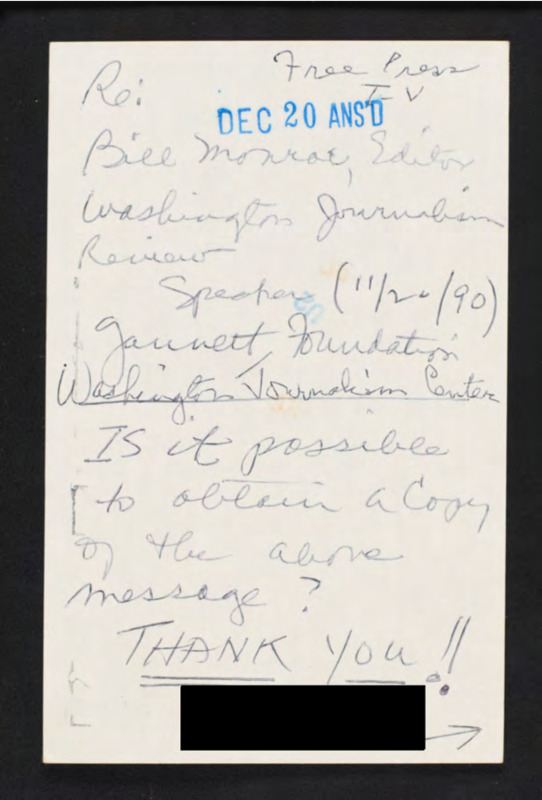 Free Press
Re: T V
DEC 20 ANS'D
Bill Monroe, Editor
Washington Journalism
Review
Speaker (11/20/90)
Gannett Foundation
Washington Journalism Center
IS it possible
to obtain a Copy
of the above
message?
THANK YOU!!